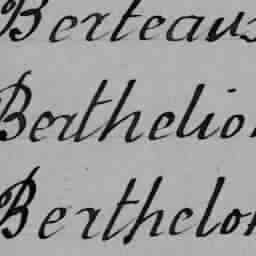 Berteaux
Berthelio
Berthelon